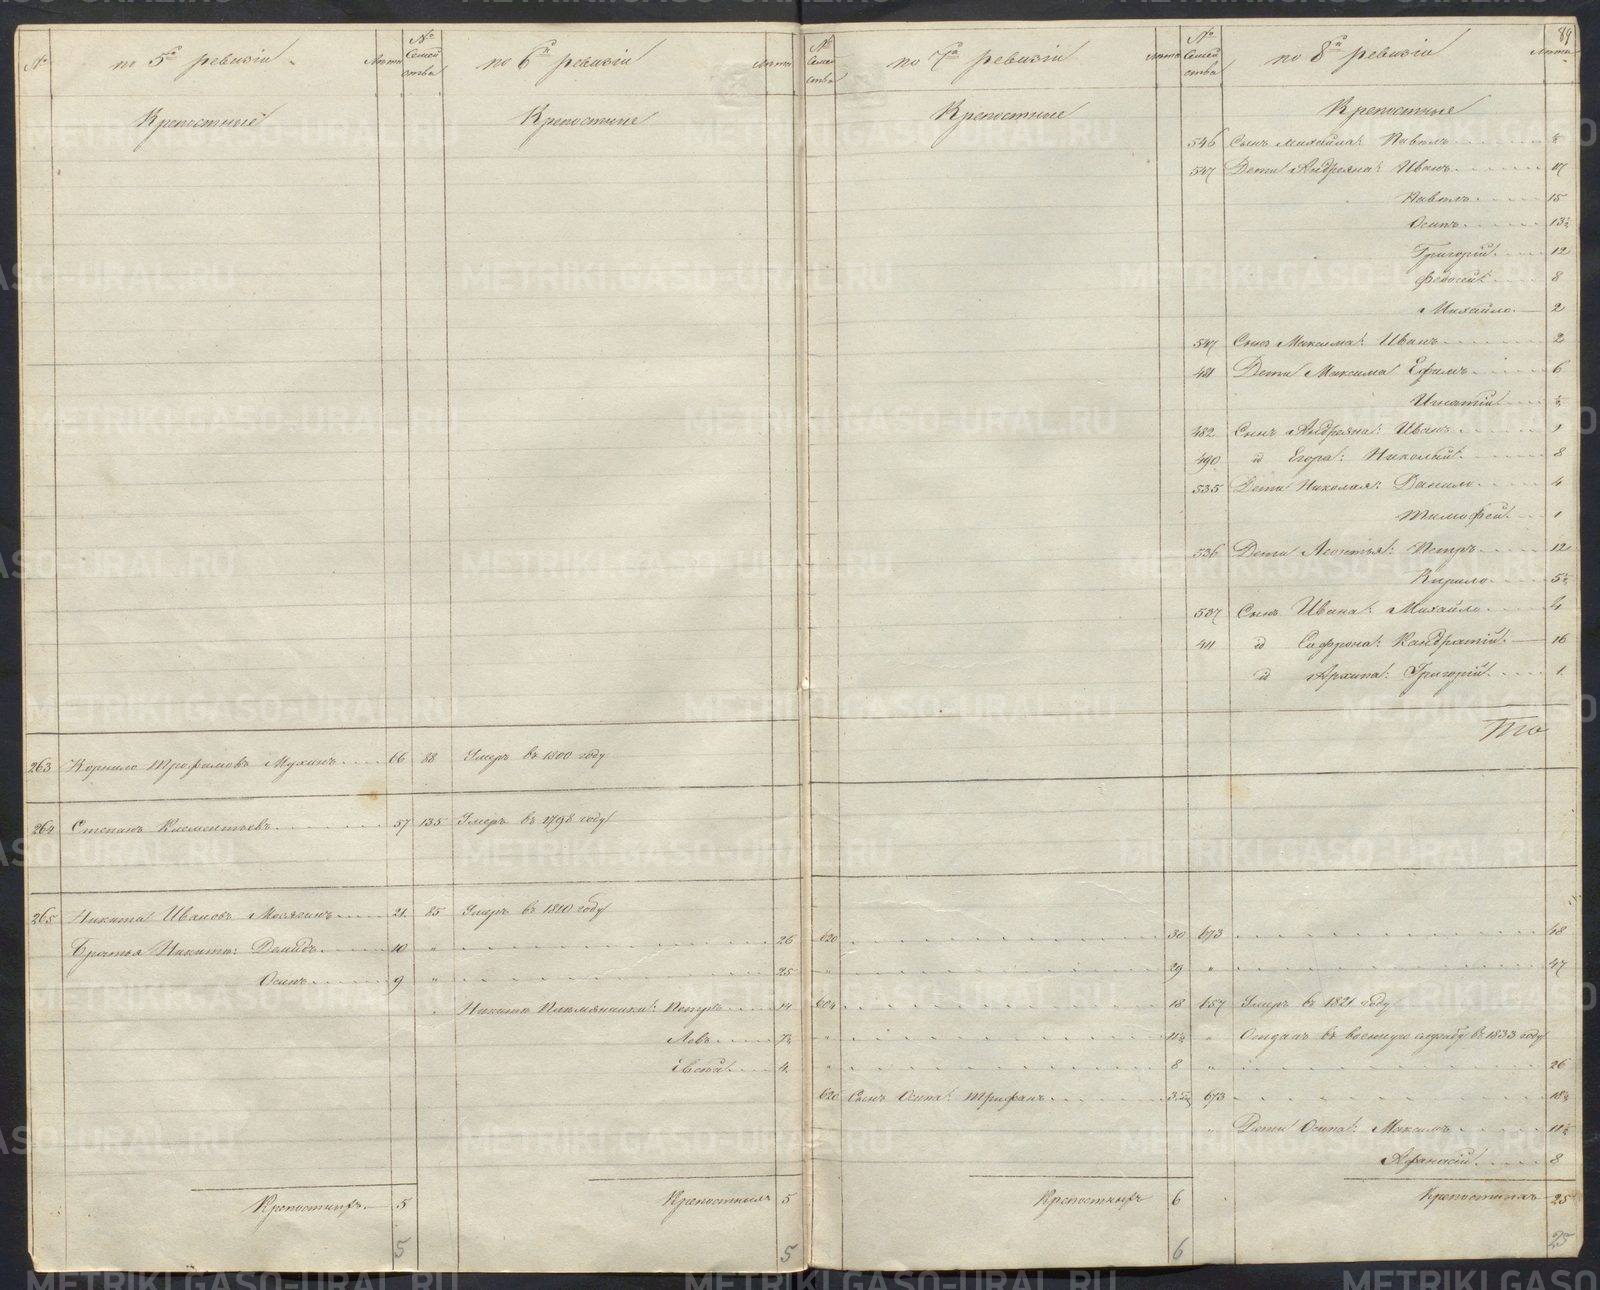 № по 5й ревизіи Лѣта № Семейства по 6й ревизіи Лѣта
№ Семейства по 7й ревизіи Лѣта № Семейства по 8й ревизіи Лѣта 89
Крепостные Крепостные Крепостные Крепостные
546 Сынъ Михайла: Павелъ
547 Дети Андреяна: Иванъ 17
Павелъ 15
Осипъ 13½
Григорій 12
Федосѣй 8
Михайло 2
547 Сынъ Максима: Иванъ 2
481 Дети Максима Ефимъ 6
Игнатій ½
482 Сынъ Андреяна: Иванъ 1
490 id Егора: Николай 8
535 Дети Николая: Данило 4
Тимофей 1
536 Дети Леонтья: Петръ 12
Кирило 5½
537 Сынъ Ивана: Михайло 4
411 id Сафрона: Кандратій 16
id Архипа: Григорій 1
263 Корнило Трофимовъ Мухинъ 66 88 Умеръ въ 1800 году
264 Степанъ Клементьевъ 57 135 Умеръ въ 1798 году
265 Никита Ивановъ Мосягинъ 21 85 Умеръ въ 1810 году
Братья Никиты: Демидъ 10 " 26 620 30 673 48
Осипъ 9 " 25 " 29 " 47
Никиты Племянники: Петръ 14 604 18 657 Умеръ въ 1821 году
Левъ 7½ " 11½ " Отданъ въ военную службу въ 1833 году
Евсѣй 4 " 8 " 26
620 Сынъ Осипа: Трифанъ 673 18½
" Дети Осипа: Максимъ 11½
Афанасій 8
Крепостныхъ 5 Крепостныхъ 5 Крепостныхъ 6 Крепостныхъ 25
5 5 6 25
METRIKI.GASO-URAL.RU